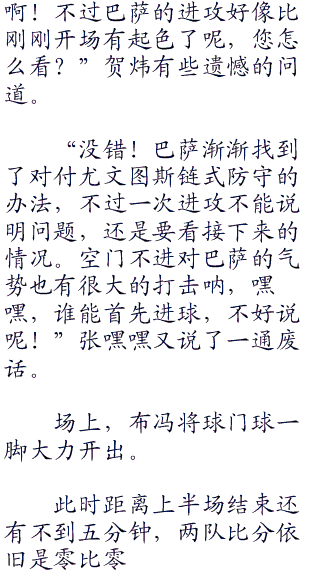 啊！不过巴萨的进攻好像比
刚刚开场有起色了呢，您怎
么看？”贺炜有些遗憾的问
道。
“没错！巴萨渐渐找到
了对付尤文图斯链式防守的
办法，不过一次进攻不能说
明问题，还是要看接下来的
情况。空门不进对巴萨的气
势也有很大的打击呐，嘿
嘿，谁能首先进球，不好说
呢！”张嘿嘿又说了一通废
话。
场上，布冯将球门球一
脚大力开出。
此时距离上半场结束还
有不到五分钟，两队比分依
旧是零比零